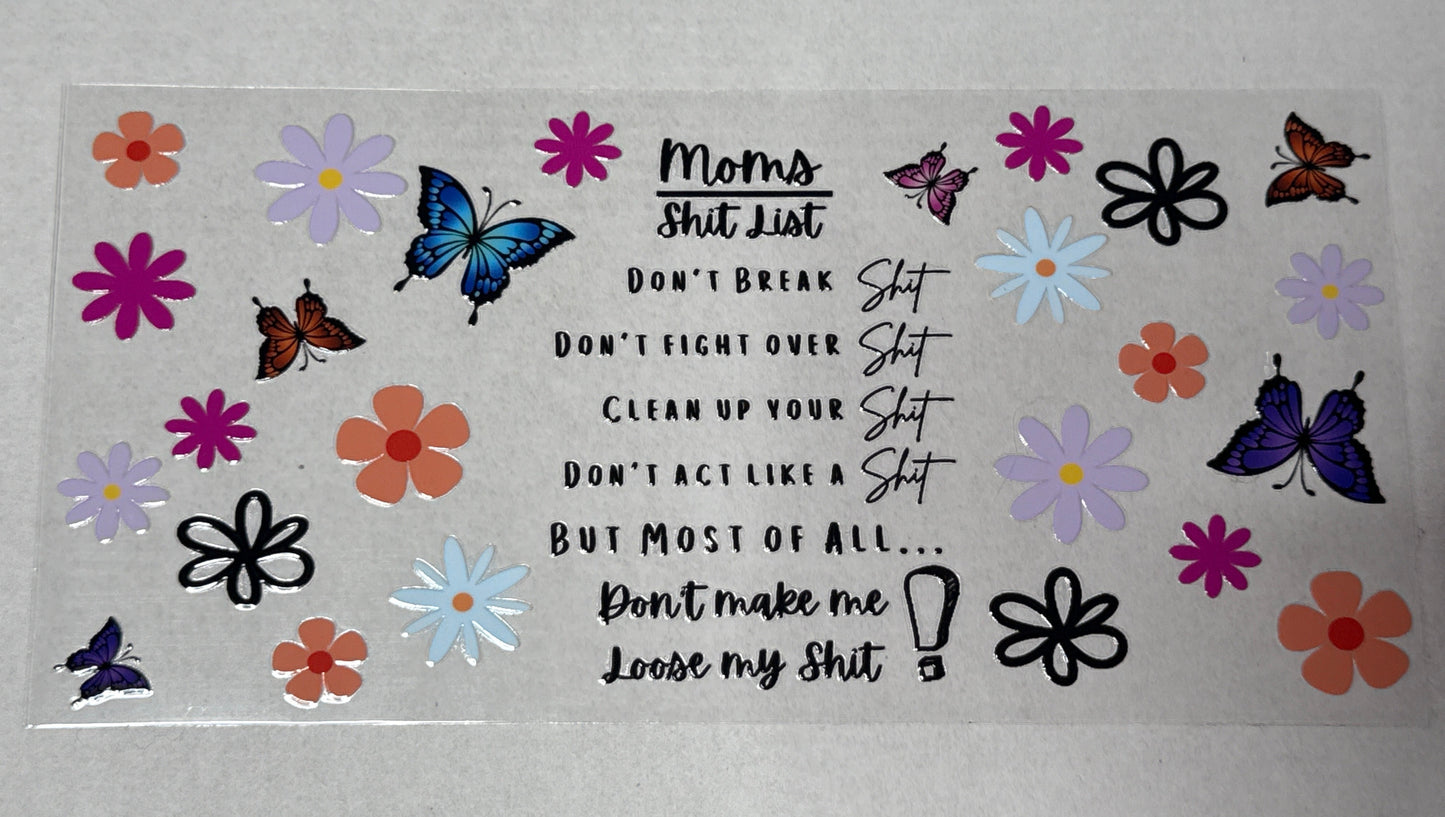 Moms
Shit List
DON'T BREAK Shit
DON'T FIGHT OVER Shit
CLEAN UP YOUR Shit
DON'T ACT LIKE A Shit
BUT MOST OF ALL...
Don't make me
Loose my Shit!